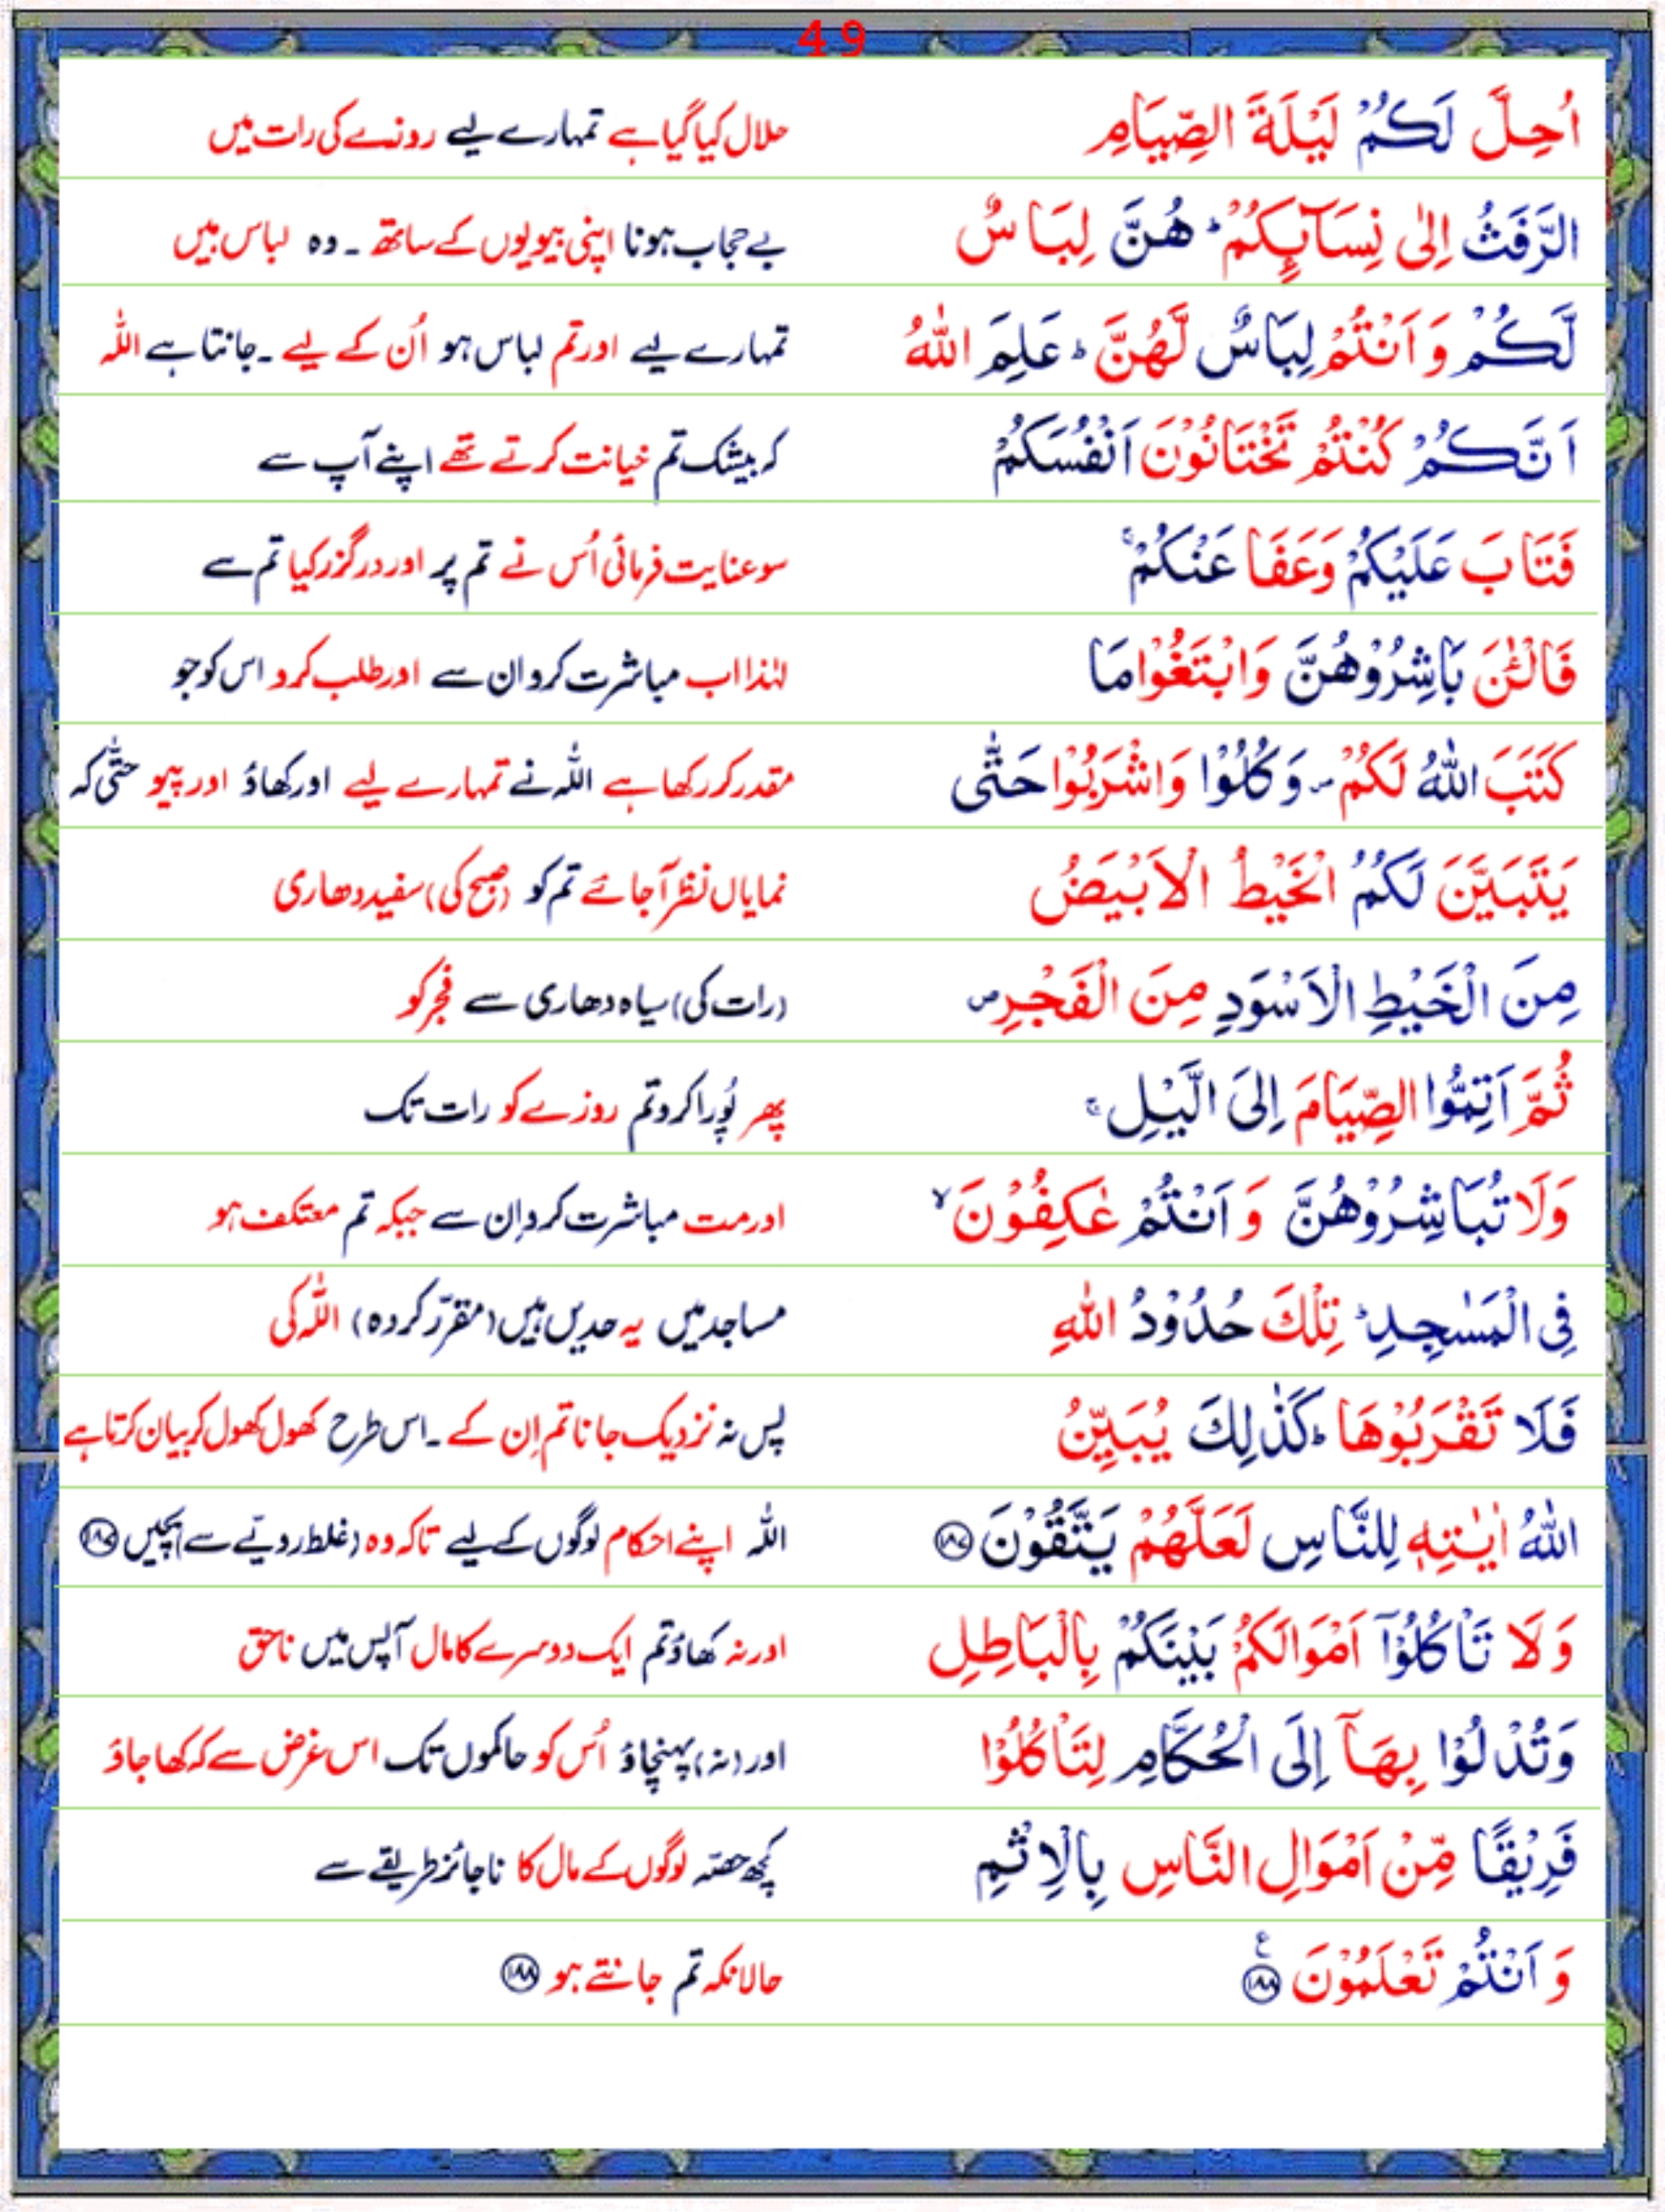 49
اُحِلَّ لَكُمْ لَيْلَةَ الصِّيَامِ حلال کیا گیا ہے تمہارے لیے روزے کی رات میں
الرَّفَثُ اِلٰى نِسَآىِٕكُمْ ؕ هُنَّ لِبَاسٌ بے حجاب ہونا اپنی بیویوں کے ساتھ ۔ وہ لباس ہیں
لَّكُمْ وَ اَنْتُمْ لِبَاسٌ لَّهُنَّ ؕ عَلِمَ اللّٰهُ تمہارے لیے اور تم لباس ہو اُن کے لیے ۔ جانتا ہے اللہ
اَنَّكُمْ كُنْتُمْ تَخْتَانُوْنَ اَنْفُسَكُمْ کہ بیشک تم خیانت کرتے تھے اپنے آپ سے
فَتَابَ عَلَيْكُمْ وَعَفَا عَنْكُمْ ۚ سو عنایت فرمائی اُس نے تم پر اور درگزر کیا تم سے
فَالْـٰٔنَ بَاشِرُوْهُنَّ وَابْتَغُوْا مَا لہٰذا اب مباشرت کرو ان سے اور طلب کرو اس کو جو
كَتَبَ اللّٰهُ لَكُمْ ۪ وَكُلُوْا وَاشْرَبُوْا حَتّٰى مقدر کر رکھا ہے اللہ نے تمہارے لیے اور کھاؤ اور پیو حتّٰی کہ
يَتَبَيَّنَ لَكُمُ الْخَيْطُ الْاَبْيَضُ نمایاں نظر آجائے تم کو (صبح کی) سفید دھاری
مِنَ الْخَيْطِ الْاَسْوَدِ مِنَ الْفَجْرِ ۪ (رات کی) سیاہ دھاری سے فجر کو
ثُمَّ اَتِمُّوا الصِّيَامَ اِلَى الَّيْلِ ۚ پھر پُورا کرو تم روزے کو رات تک
وَلَا تُبَاشِرُوْهُنَّ وَ اَنْتُمْ عٰكِفُوْنَ ۙ اور مت مباشرت کرو اِن سے جبکہ تم معتکف ہو
فِى الْمَسٰجِدِ ؕ تِلْكَ حُدُوْدُ اللّٰهِ مساجد میں یہ حدیں ہیں (مقرّر کردہ) اللہ کی
فَلَا تَقْرَبُوْهَا ؕ كَذٰلِكَ يُبَيِّنُ پس نہ نزدیک جانا تم اِن کے ۔ اس طرح کھول کھول کر بیان کرتا ہے
اللّٰهُ اٰيٰتِهٖ لِلنَّاسِ لَعَلَّهُمْ يَتَّقُوْنَ ۱۸۷ اللہ اپنے احکام لوگوں کے لیے تاکہ وہ (غلط رویّے سے) بچیں ۱۸۷
وَ لَا تَاْكُلُوْۤا اَمْوَالَكُمْ بَيْنَكُمْ بِالْبَاطِلِ اور نہ کھاؤ تم ایک دوسرے کا مال آپس میں ناحق
وَتُدْلُوْا بِهَاۤ اِلَى الْحُكَّامِ لِتَاْكُلُوْا اور (نہ) پہنچاؤ اُس کو حاکموں تک اس غرض سے کہ کھا جاؤ
فَرِيْقًا مِّنْ اَمْوَالِ النَّاسِ بِالْاِثْمِ کچھ حصّہ لوگوں کے مال کا ناجائز طریقے سے
وَ اَنْتُمْ تَعْلَمُوْنَ ۱۸۸ ع حالانکہ تم جانتے ہو ۱۸۸